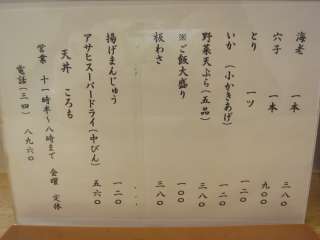 海老　一本　三八〇
穴子　一本　九〇〇
とり　一ツ　一二〇
いか（小かきあげ）　一二〇
野菜天ぷら（五品）　三八〇
※ご飯大盛り　一〇〇
板わさ　三八〇
揚げまんじゅう　一二〇
アサヒスーパードライ（中びん）　五六〇
天丼　ころも
営業　十一時半〜八時まで　金曜　定休
電話（三四）八九六〇